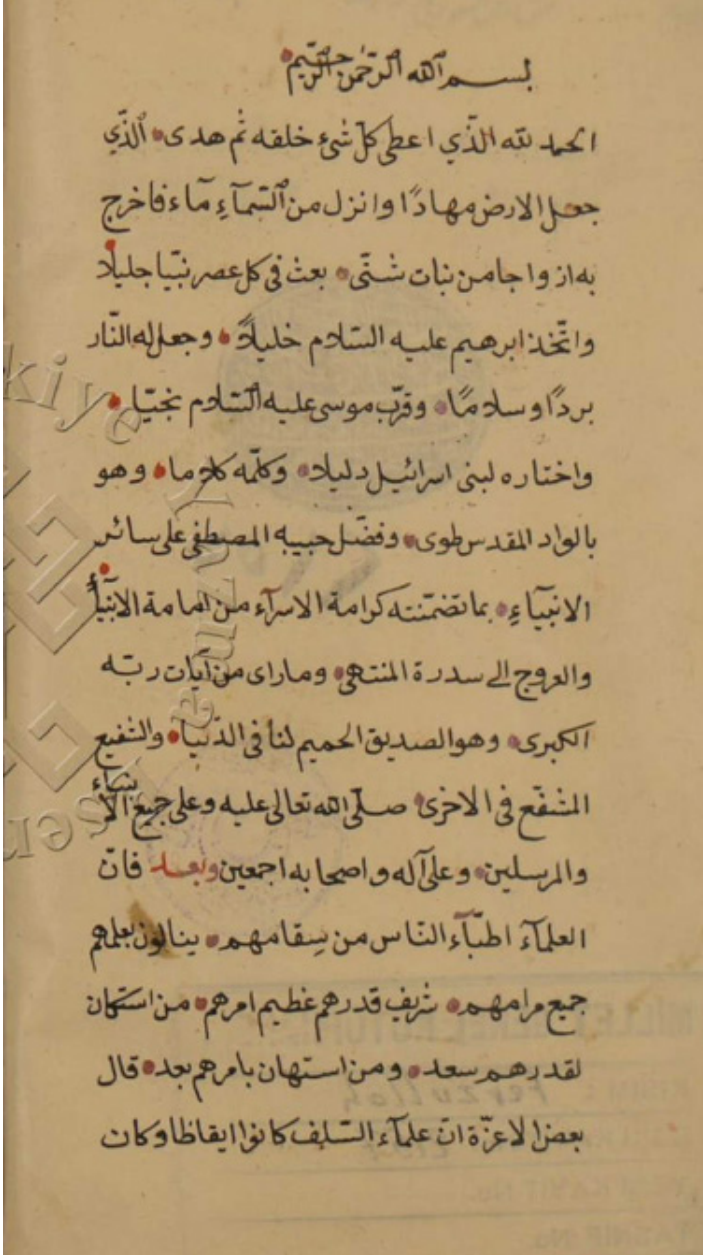 بسم الله الرحمن الرحيم
الحمد لله الذي اعطى كل شئ خلقه ثم هدى الذي
جعل الارض مهادا وانزل من السماء ماء فاخرج
به ازواجا من نبات شتى بعث في كل عصر نبيا جليلا
واتخذ ابرهيم عليه السلام خليلا وجعل له النار
بردا وسلاما وقرب موسى عليه السلام نجيا
واختاره لبنى اسرائيل دليلا وكلمه كلاما وهو
بالواد المقدس طوى وفضل حبيبه المصطفى على سائر
الانبياء بما تضمنته كرامة الاسراء من امامة الانبياء
والعروج الى سدرة المنتهى وما راى من آيات ربه
الكبرى وهو الصديق الحميم لنا في الدنيا والشفيع
المشفع في الاخرى صلى الله تعالى عليه وعلى جميع الانبياء
والمرسلين وعلى آله واصحابه اجمعين وبعد فان
العلماء اطباء الناس من سقامهم ينالون بعلمهم
جميع مرامهم شريف قدرهم عظيم امرهم من استكان
لقدرهم سعد ومن استهان بامرهم بعد قال
بعض الاعزة ان علماء السلف كانوا ايقاظا وكان